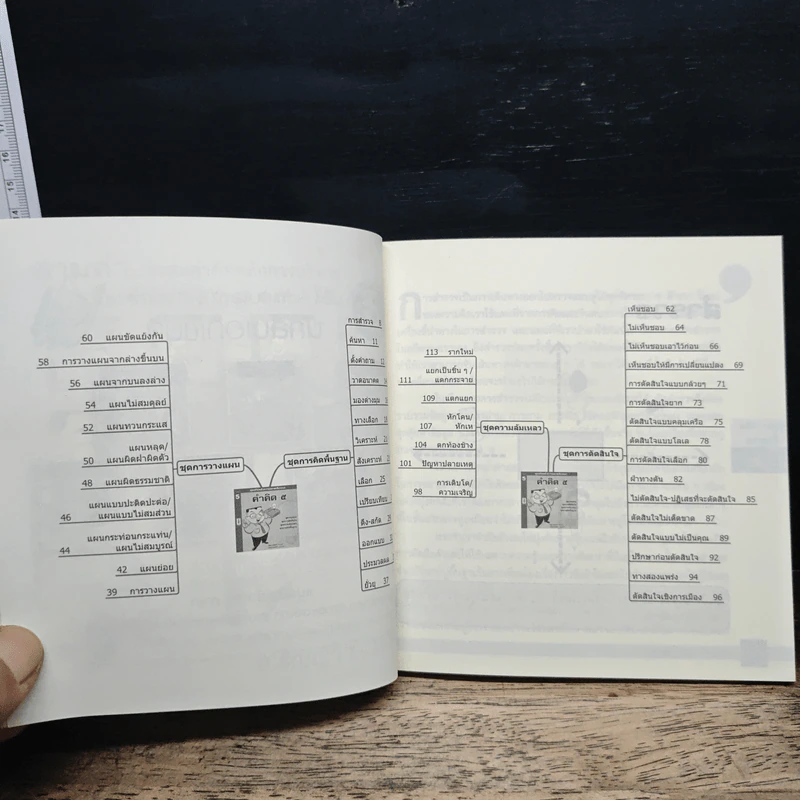 60 แผนขัดแย้งกัน
58 การวางแผนจากล่างขึ้นบน
56 แผนจากบนลงล่าง
54 แผนไม่สมดุลย์
52 แผนทวนกระแส
แผนหลุด/
50 แผนผิดฝาผิดตัว
48 แผนผิดธรรมชาติ
แผนแบบปะติดปะต่อ/
46 แผนแบบไม่สมส่วน
แผนกระท่อนกระแท่น/
44 แผนไม่สมบูรณ์
42 แผนย่อย
39 การวางแผน
ชุดการวางแผน
คำคิด ๕
ชุดการคิดพื้นฐาน
การสำรวจ 8
ค้นหา 11
ตั้งคำถาม 12
วาดอนาคต
มองต่างมุม
ทางเลือก
วิเคราะห์
สังเคราะห์
เลือก 25
เปรียบเทียบ
ดึง-สกัด
ออกแบบ
ประมวลผล
ยั่วยุ 37
113 รากใหม่
แยกเป็นชิ้น ๆ/
111 แตกกระจาย
109 แตกแยก
หักโค่น/
107 หักเห
104 ตกท้องช้าง
101 ปัญหาปลายเหตุ
การเติบโต/
98 ความเจริญ
ชุดความล้มเหลว
คำคิด ๕
ชุดการตัดสินใจ
เห็นชอบ 62
ไม่เห็นชอบ 64
ไม่เห็นชอบเอาไว้ก่อน 66
เห็นชอบให้มีการเปลี่ยนแปลง 69
การตัดสินใจแบบกล้วยๆ 71
การตัดสินใจยาก 73
ตัดสินใจแบบคลุมเครือ 75
ตัดสินใจแบบโลเล 78
การตัดสินใจเลือก 80
ฝ่าทางตัน 82
ไม่ตัดสินใจ-ปฏิเสธที่จะตัดสินใจ 85
ตัดสินใจไม่เด็ดขาด 87
ตัดสินใจแบบไม่เป็นคุณ 89
ปรึกษาก่อนตัดสินใจ 92
ทางสองแพร่ง 94
ตัดสินใจเชิงการเมือง 96
17
16
15
14